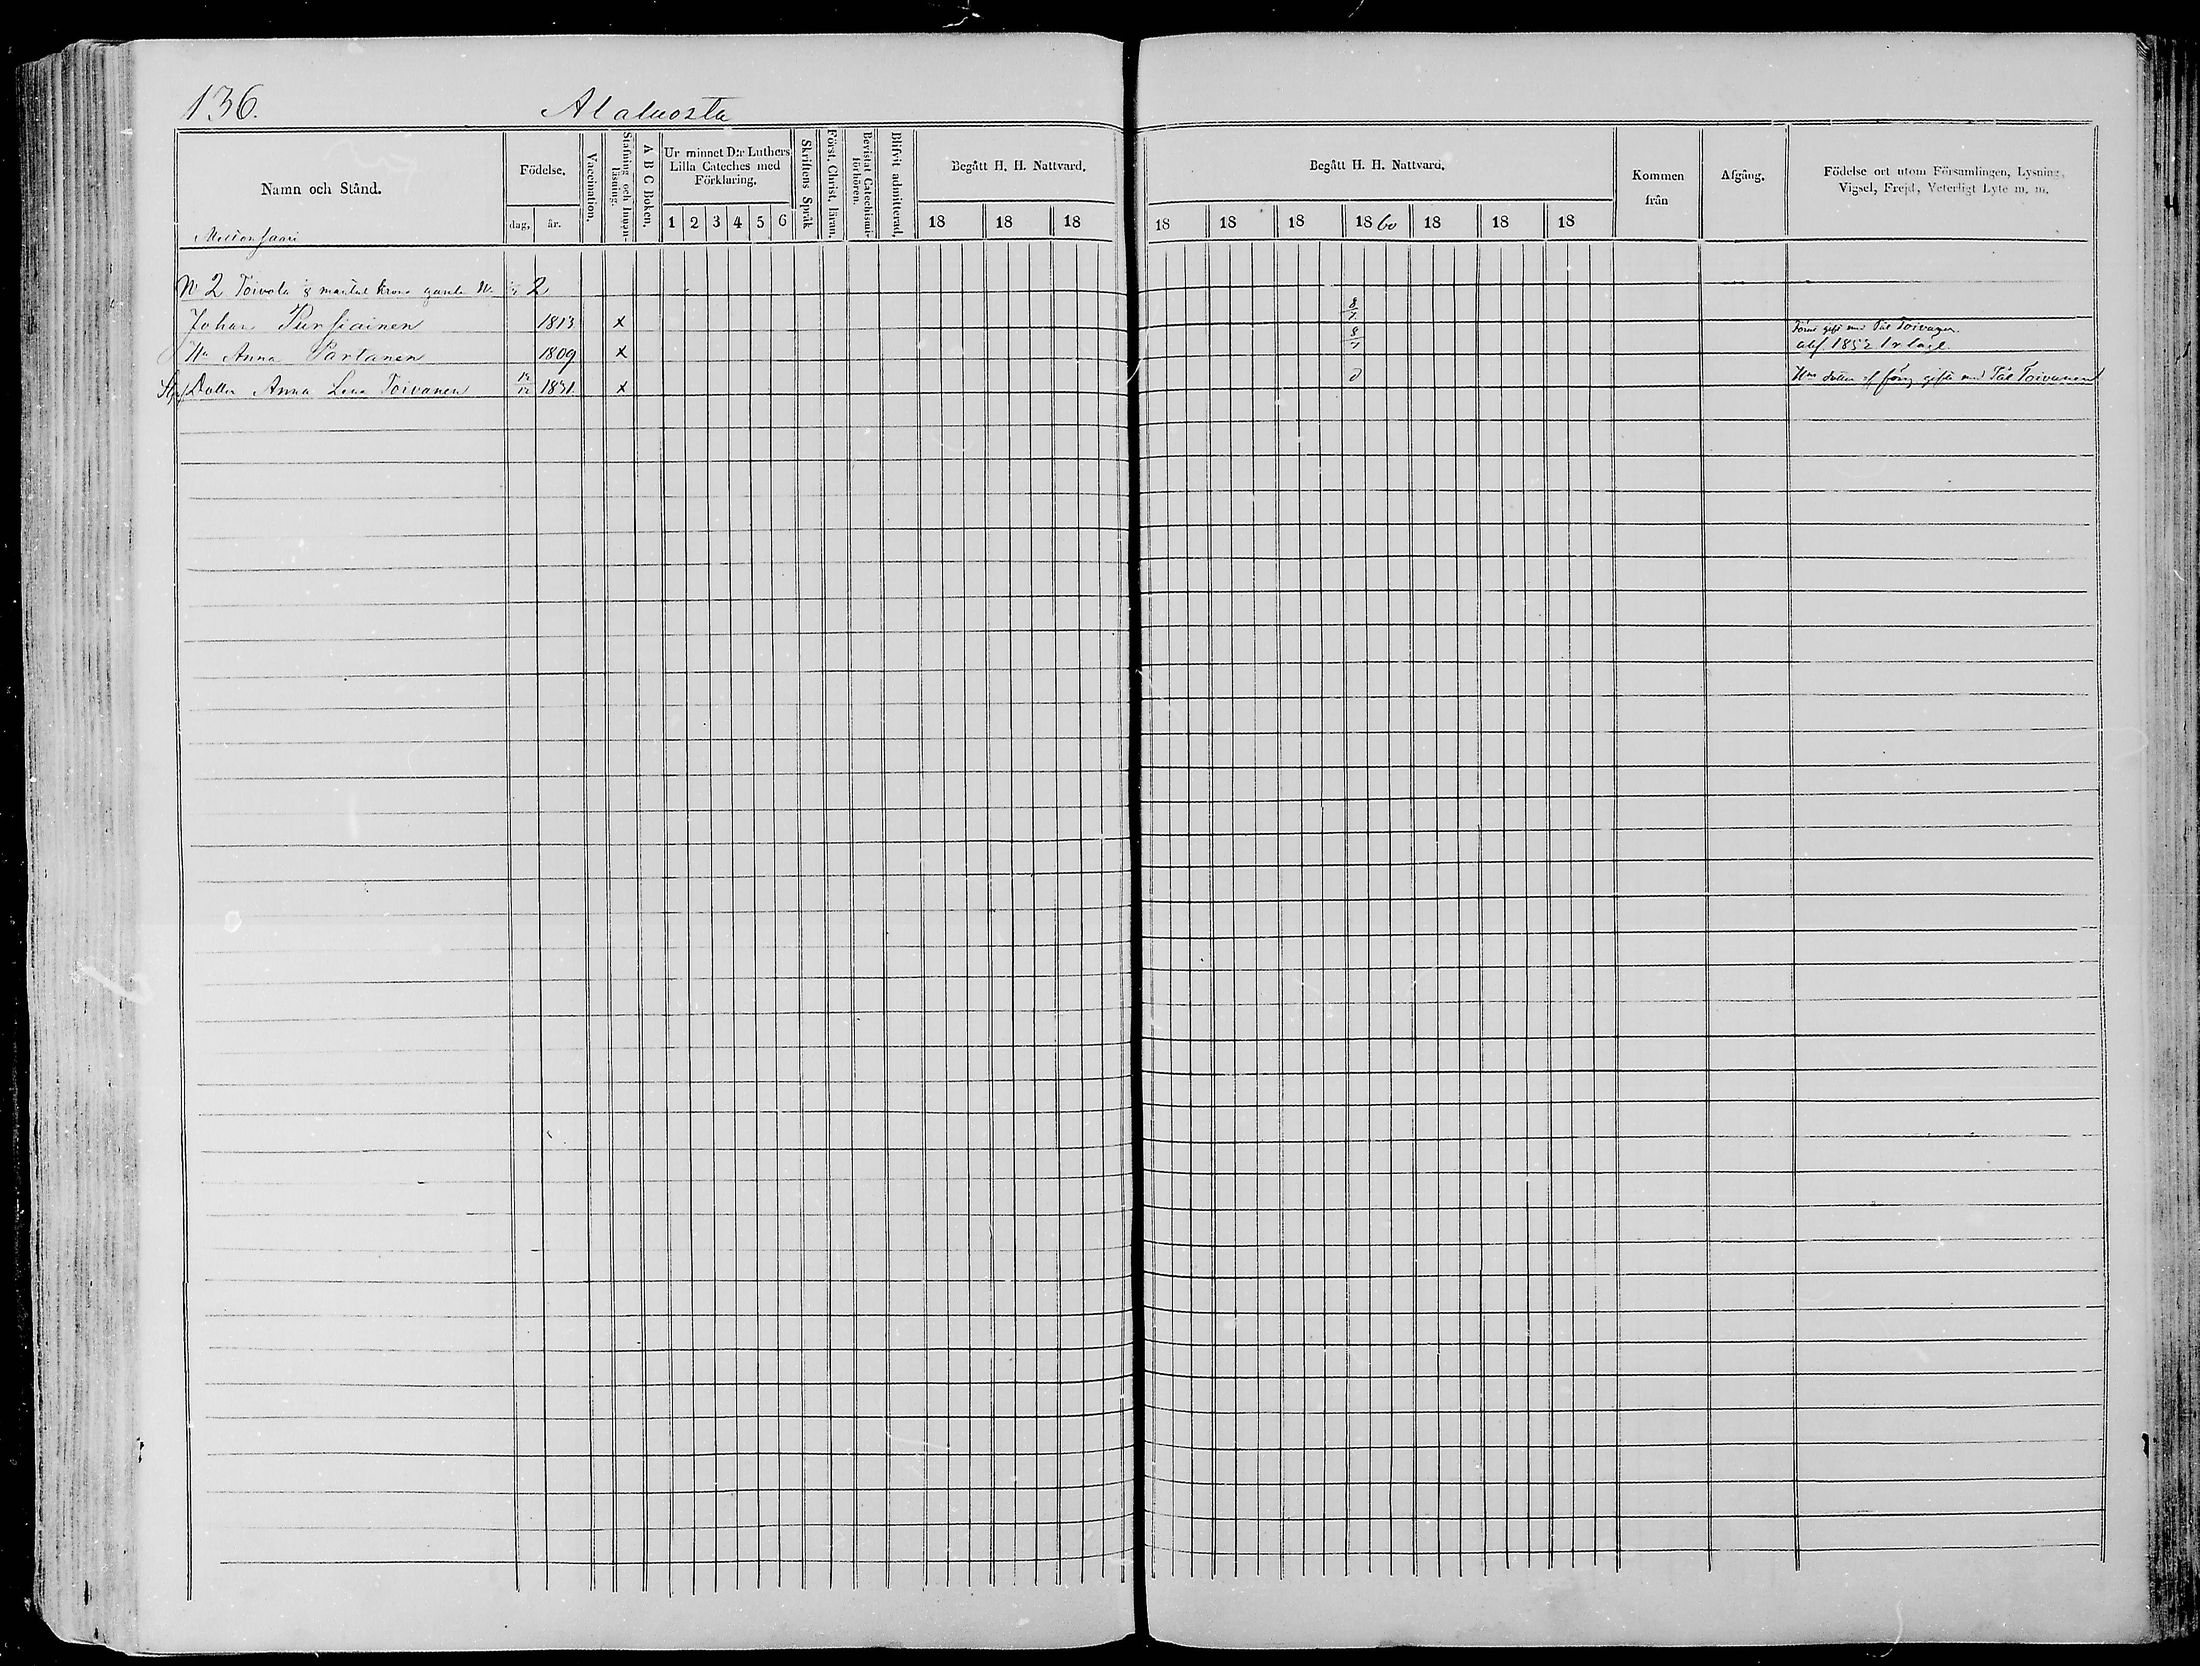 136.
Alaluosta
Namn och Stånd.
Födelse.
dag,
år.
Vaccination.
Stafning och Innan-
läsning.
A B C Boken.
Ur minnet D:r Luthers
Lilla Cateches med
Förklaring.
1 2 3 4 5 6
Skriftens Språk
Först. Christ. läran.
Bevistat Catechismi-
förhören.
Blifvit admitterad.
Begått H. H. Nattvard.
18 18 18
Begått H. H. Nattvard.
18 18 18 1860 18 18 18
Kommen
från
Afgång.
Födelse ort utom Församlingen, Lysning,
Vigsel, Frejd, Veterligt Lyte m. m.
N 2 Toivola mantal krono 2
Johan Pursiainen 1813 x 8/7
Hu Anna Partanen 1809 x 8/7 abf. 1852
Dotter Anna Lena Toivanen 1831 x Hus dotter gifte med Pål Toivanen